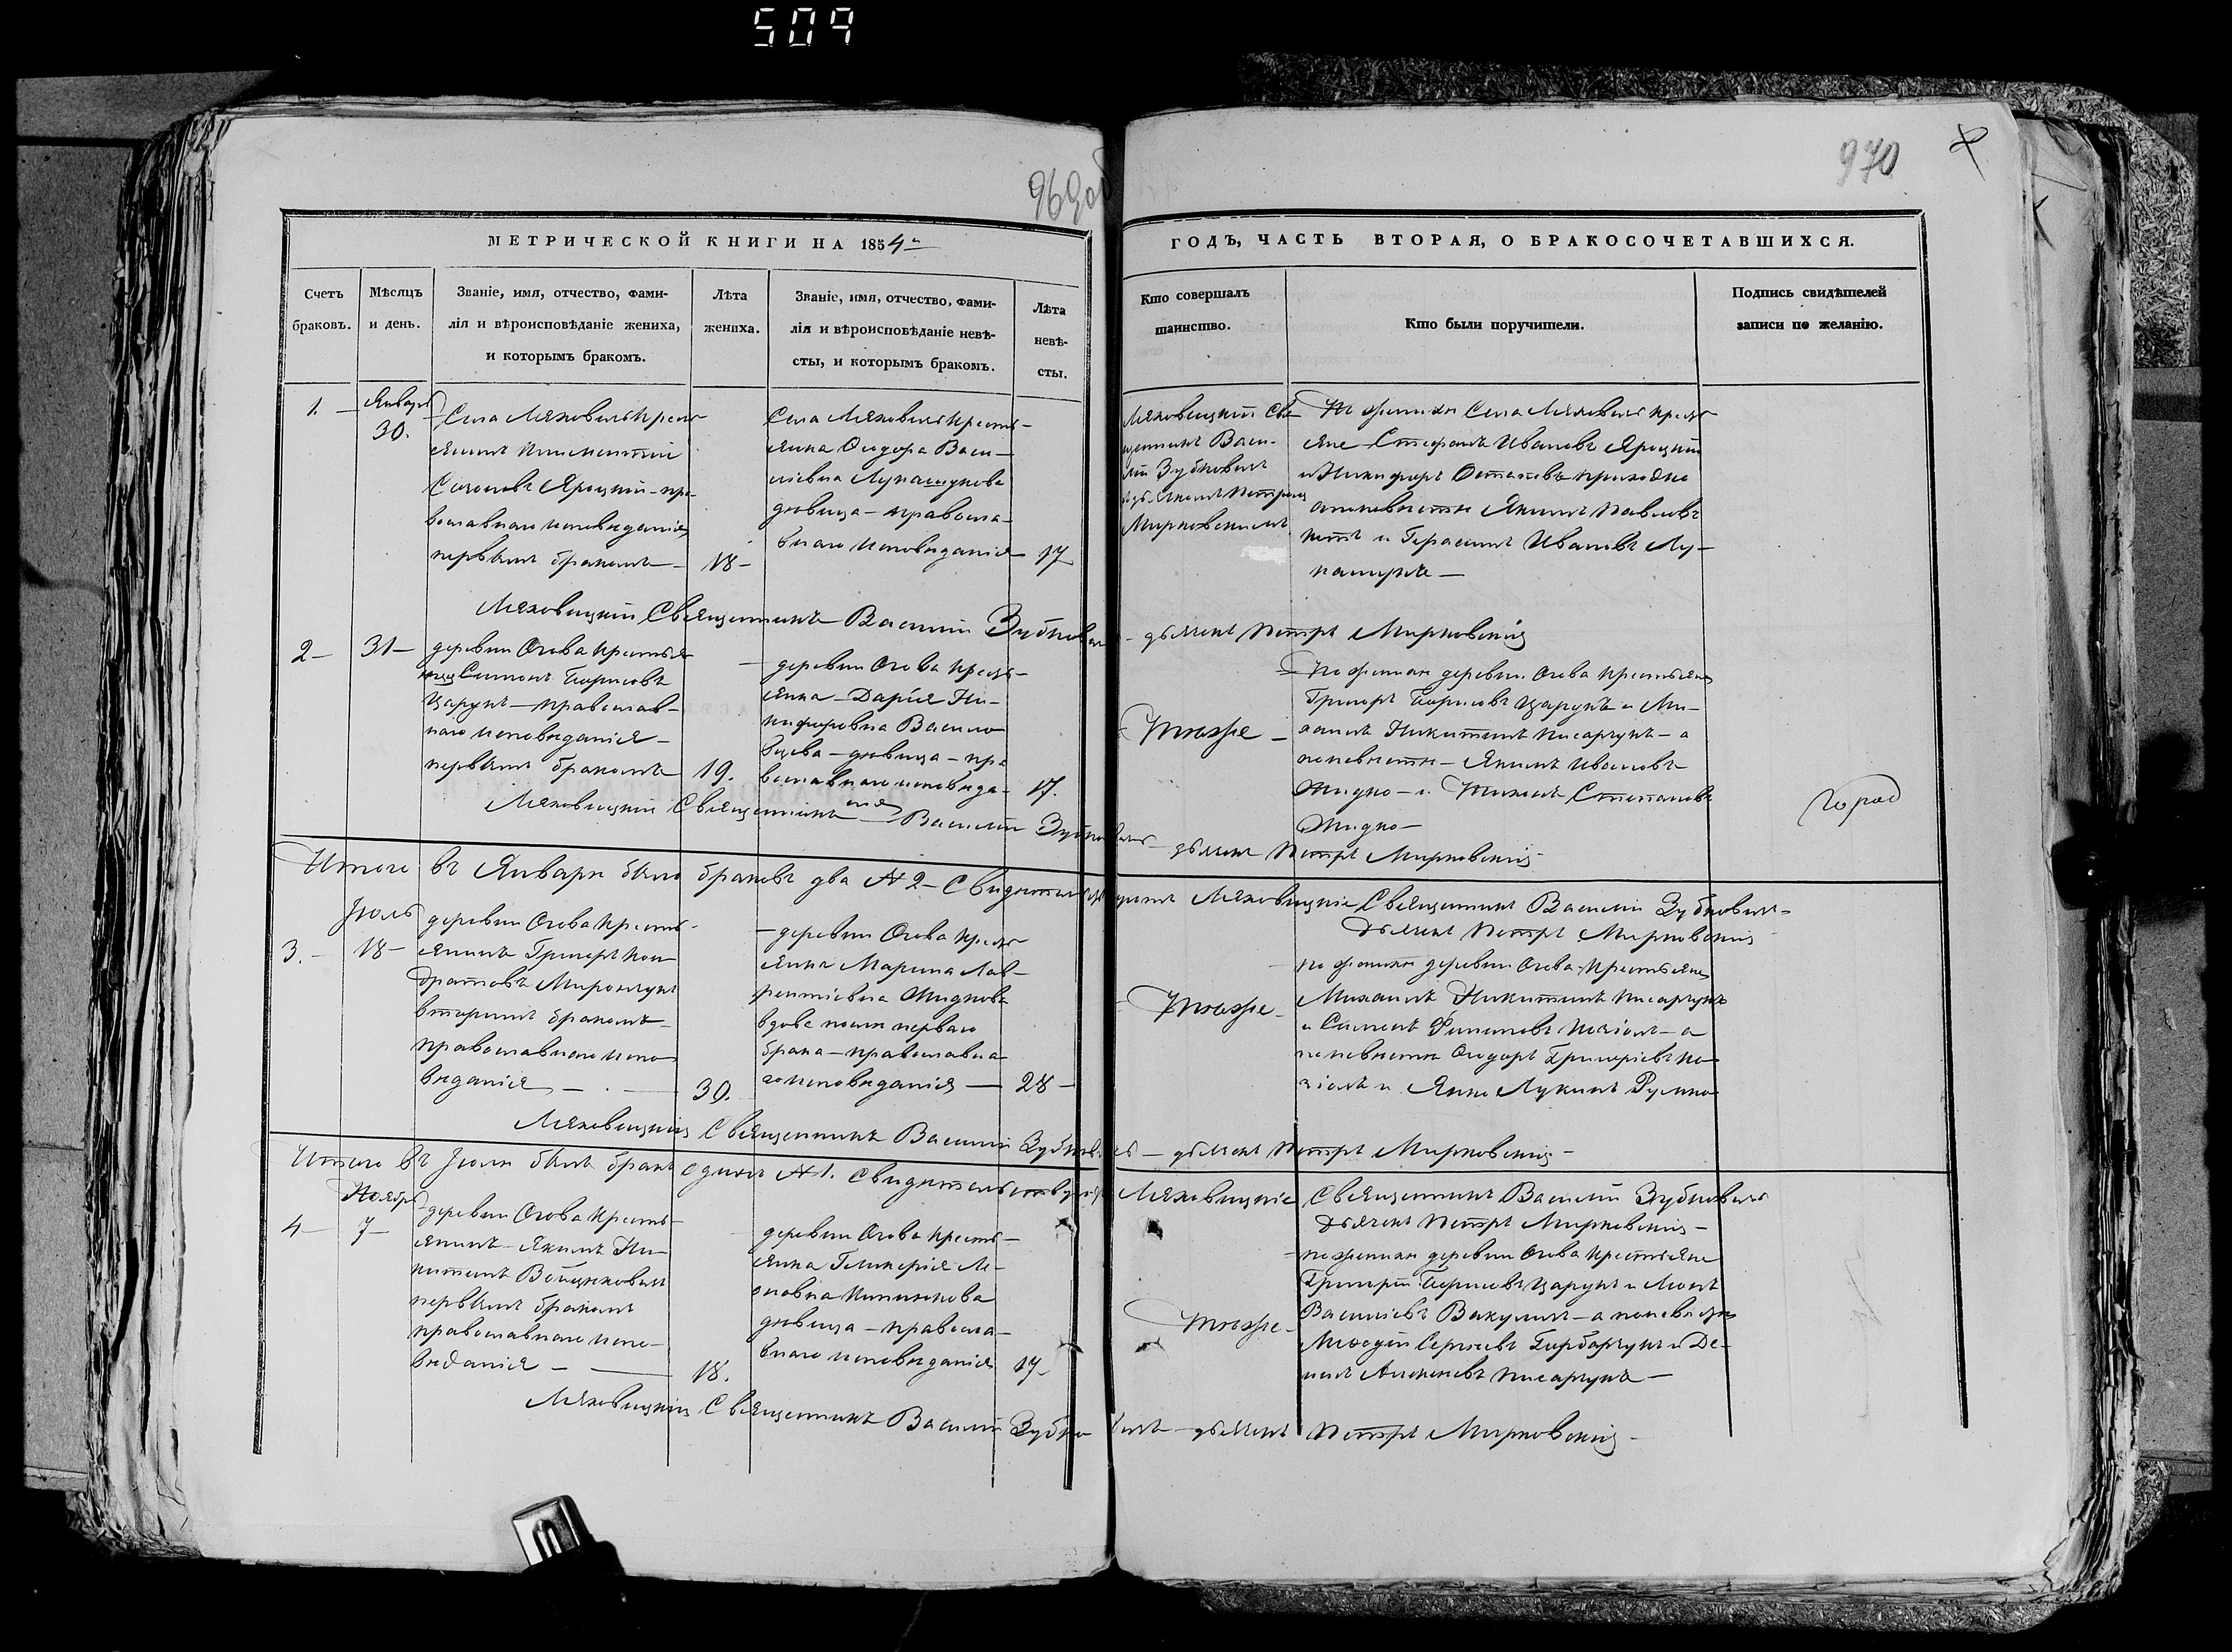 509
969об
970
МЕТРИЧЕСКОЙ КНИГИ НА 1854
ГОДЪ, ЧАСТЬ ВТОРАЯ, О БРАКОСОЧЕТАВШИХСЯ.
Счетъ
браковъ.
Мѣсяцъ
и день.
Званіе, имя, отчество, фами-
лія и вѣроисповѣданіе жениха,
и которымъ бракомъ.
Лѣта
жениха.
Званіе, имя, отчество, фами-
лія и вѣроисповѣданіе невѣ-
сты, и которымъ бракомъ.
Лѣта
невѣ-
сты.
Кто совершалъ
таинство.
Кто были поручители.
Подпись свидѣтелей
записи по желанію.
1.
Январь
30.
Села Ляховичь Крест-
янинъ
Яроцкій - пра-
вославнаго исповѣданія
первымъ бракомъ
18
Села Ляховичь Кресть-
янка Ѳидора Васи-
ліевна Лукашукова
дѣвица - правосла-
внаго исповѣданія
17
Ляховицкій Свя-
щенникъ Васи-
лій Зубковичь
дьячкомъ Петромъ
Мирковскимъ
По женихѣ Села Ляховичь Крест-
яне Стефанъ Ивановъ Яроцкій
и Никифоръ Приходко
а по невѣстѣ Якимъ Павловъ
и Герасимъ Ивановъ Лу-
кашукъ
Ляховицкій Священникъ Василій Зубковичь - дьячекъ Петръ Мирковскій
2
31
деревни Огова Крестья-
нинъ Симонъ Борисовъ
Царукъ - православ-
наго исповѣданія
первымъ бракомъ
19.
деревни Огова Кресть-
янка - Дарія Ни-
кифоровна Васило-
вцева - дѣвица - пра-
вославнаго исповѣда-
нія
17.
Тотже
По женихѣ деревни Огова Крестьяне
Григоръ Борисовъ Царукъ и Ми-
хаилъ Никитинъ Писарчукъ - а
по невѣстѣ - Якимъ Ивановъ
Жидко - и Тихонъ Степановъ
Жидко
город
Ляховицкій Священникъ Василій Зубковичь - дьячекъ Петръ Мирковскій
Итого въ Январѣ было браковъ два № 2 - Свидѣтельствуемъ Ляховицкіе Священникъ Василій Зубковичь
Дьячекъ Петръ Мирковскій
3.
Іюль
18
деревни Огова Кресть-
янинъ Григоръ Кон-
дратовъ Мирончукъ
вторымъ бракомъ
православнаго испо-
вѣданія
30.
деревни Огова Крест-
янка Марина Лав-
рентіевна Жидкова
вдова послѣ перваго
брака - православна-
го исповѣданія
28
Тотже
по женихѣ деревни Огова Крестьяне
Михаилъ Никитинъ Писарчукъ
и Симонъ Филиповъ Козіолъ - а
по невѣстѣ Ѳедоръ Григоріевъ Ко-
зіолъ и Янко Лукинъ
Ляховицкій Священникъ Василій Зубковичь - дьячекъ Петръ Мирковскій
Итого въ Іюлѣ былъ бракъ одинъ № 1. Свидѣтельствуемъ Ляховицкіе Священникъ Василій Зубковичь
Дьячекъ Петръ Мирковскій
4
Ноябрь
7
деревни Огова Кресть-
янинъ - Якимъ Ни-
китинъ Войцѣховичь
первымъ бракомъ
православнаго испо-
вѣданія
18.
деревни Огова Кресть-
янка Гликерія Ле-
оновна
дѣвица - правосла-
внаго исповѣданія
17
Тотже
по женихѣ деревни Огова Крестьяне
Григорій Борисовъ Царукъ и Леонъ
Василіевъ Вакуличь - а по невѣстѣ
Меѳодій Сергіевъ Горбарчукъ и Де-
Писарчукъ
Ляховицкій Священникъ Василій Зубковичь - дьячекъ Петръ Мирковскій